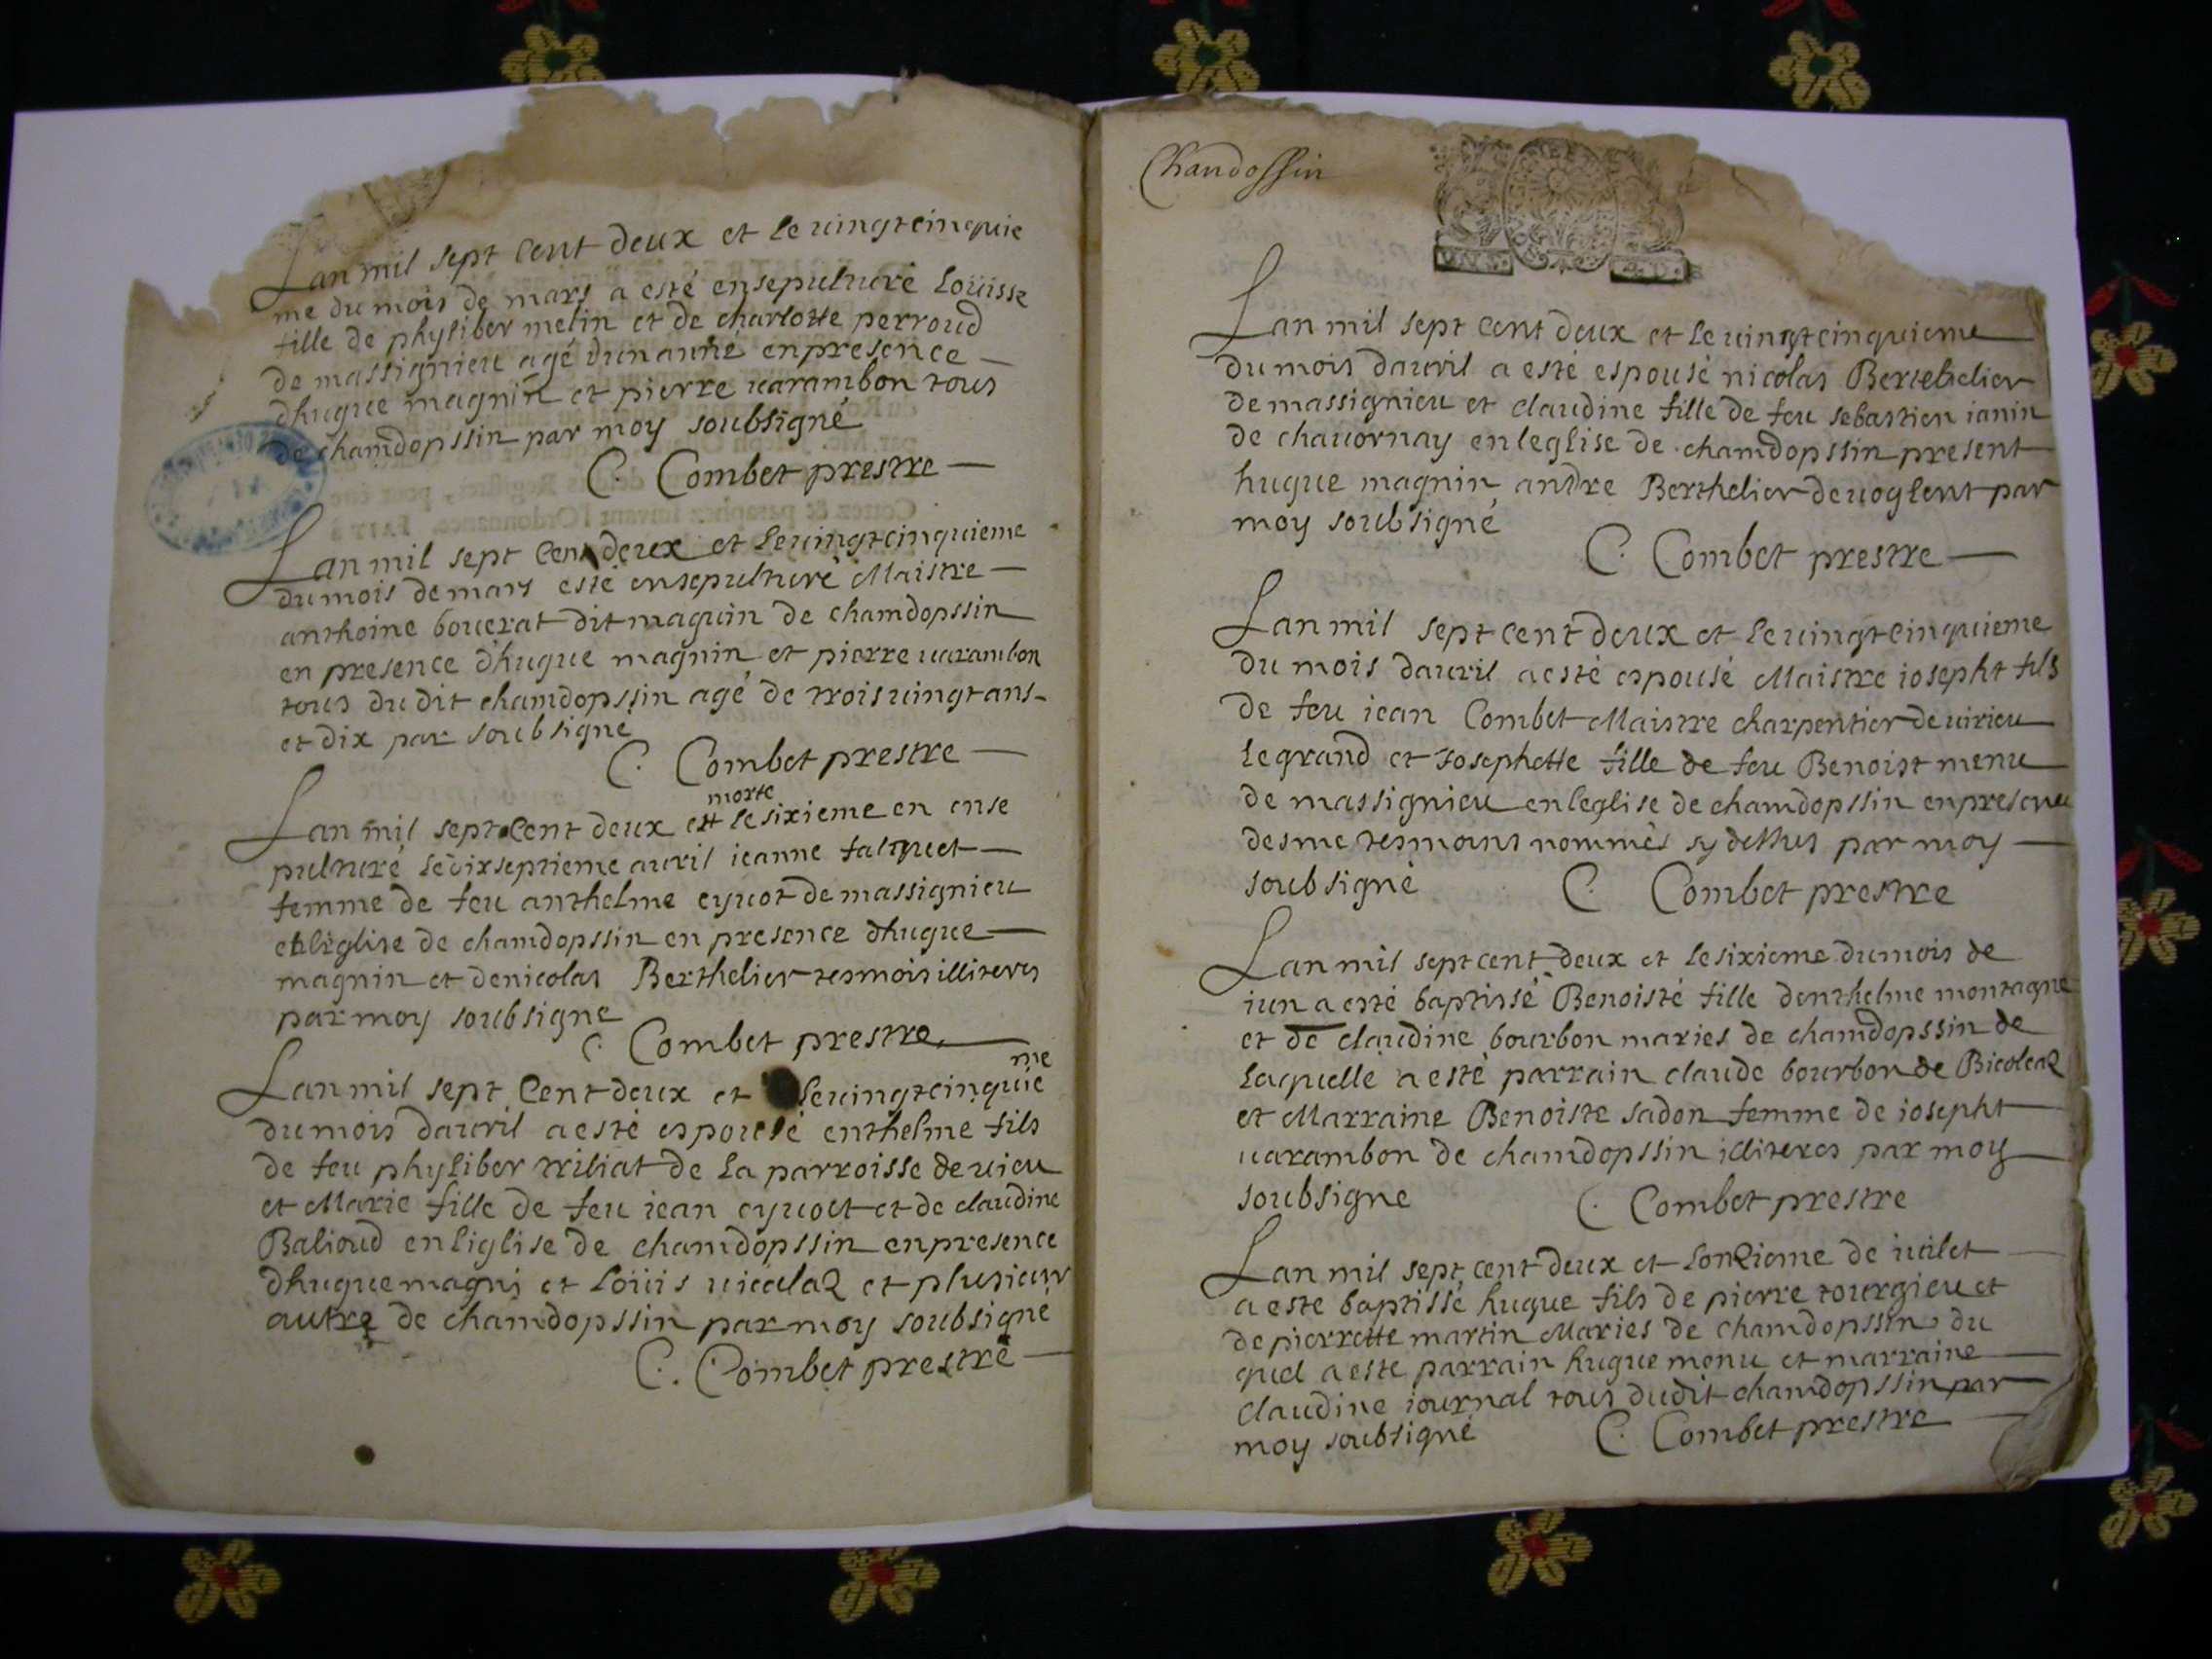 Lan mil sept Cent deux et le uingtcinquie
me du mois de mars a esté ensepulturé Loüisse
fille de phyliber melin et de charlotte perroud
de massignieu agé dun anné enpresence
dhugue magnin et pierre uarambon tous
de chamdopssin par moy soubsigné
C. Combet prestre
Lan mil sept Cent deux et le uingtcinquieme
du mois de mars esté ensepulturé Maistre
anthoine bouerat dit maquin de chamdopssin
en presence dhugue magnin et pierre uarambon
tous du dit chamdopssin agé de trois uingt ans
et dix par soubsigné
C. Combet prestre
morte
Lan mil sept Cent deux et le sixieme en ense
pulturé le dixseptieme auril ieanne falquet
femme de feu anthelme eyuot de massignieu
en leglise de chamdopssin en presence dhugue
magnin et denicolas Berthelier tesmois illiteres
par moy soubsigne
C. Combet prestre
me
Lan mil sept Cent deux et le uingtcinquie
du mois dauril a esté espousé enthelme fils
de feu phyliber triliat de la parroisse de uieu
et Marie fille de feu iean eyuoet et de claudine
Balioud enliglise de chamdopssin enpresence
dhugue magni et Loüis uicalaz et plusieur
autre de chamdopssin par moy soubsigné
C. Combet prestre
Chandossin
Lan mil sept Cent deux et le uingtcinquieme
du mois dauril a esté espousé nicolas Bertehelier
de massignieu et claudine fille de feu sebastien ianin
de chauornay enleglise de chamdopssin present
hugue magnin andre Berthelier de uoglent par
moy soubsigné
C. Combet prestre
Lan mil sept cent deux et le uingtcinquieme
du mois dauril a esté espousé Maistre iosepht fils
de feu iean Combet Maistre charpentier de uirieu
le grand et iosephette fille de feu Benoist menu
de massignieu enleglise de chamdopssin enpresence
desme tesmoins nommés sy dessus par moy
soubsigné
C. Combet prestre
Lan mil sept cent deux et le sixieme du mois de
iun a esté baptissé Benoisté fille denthelme montagne
et de claudine bourbon maries de chamdopssin de
Laquelle a esté parrain claude bourbon de Bicoleaz
et Marraine Benoiste sadon femme de iosepht
uarambon de chamdopssin illiteres par moy
soubsigne
C. Combet prestre
Lan mil sept cent deux et lonzieme de iuilet
a este baptissé hugue fils de pierre tourgieu et
de pierrette martin Maries de chamdopssin du
quel a este parrain hugue menu et marraine
claudine iournal tous dudit chamdopssin par
moy soubsigné
C. Combet prestre